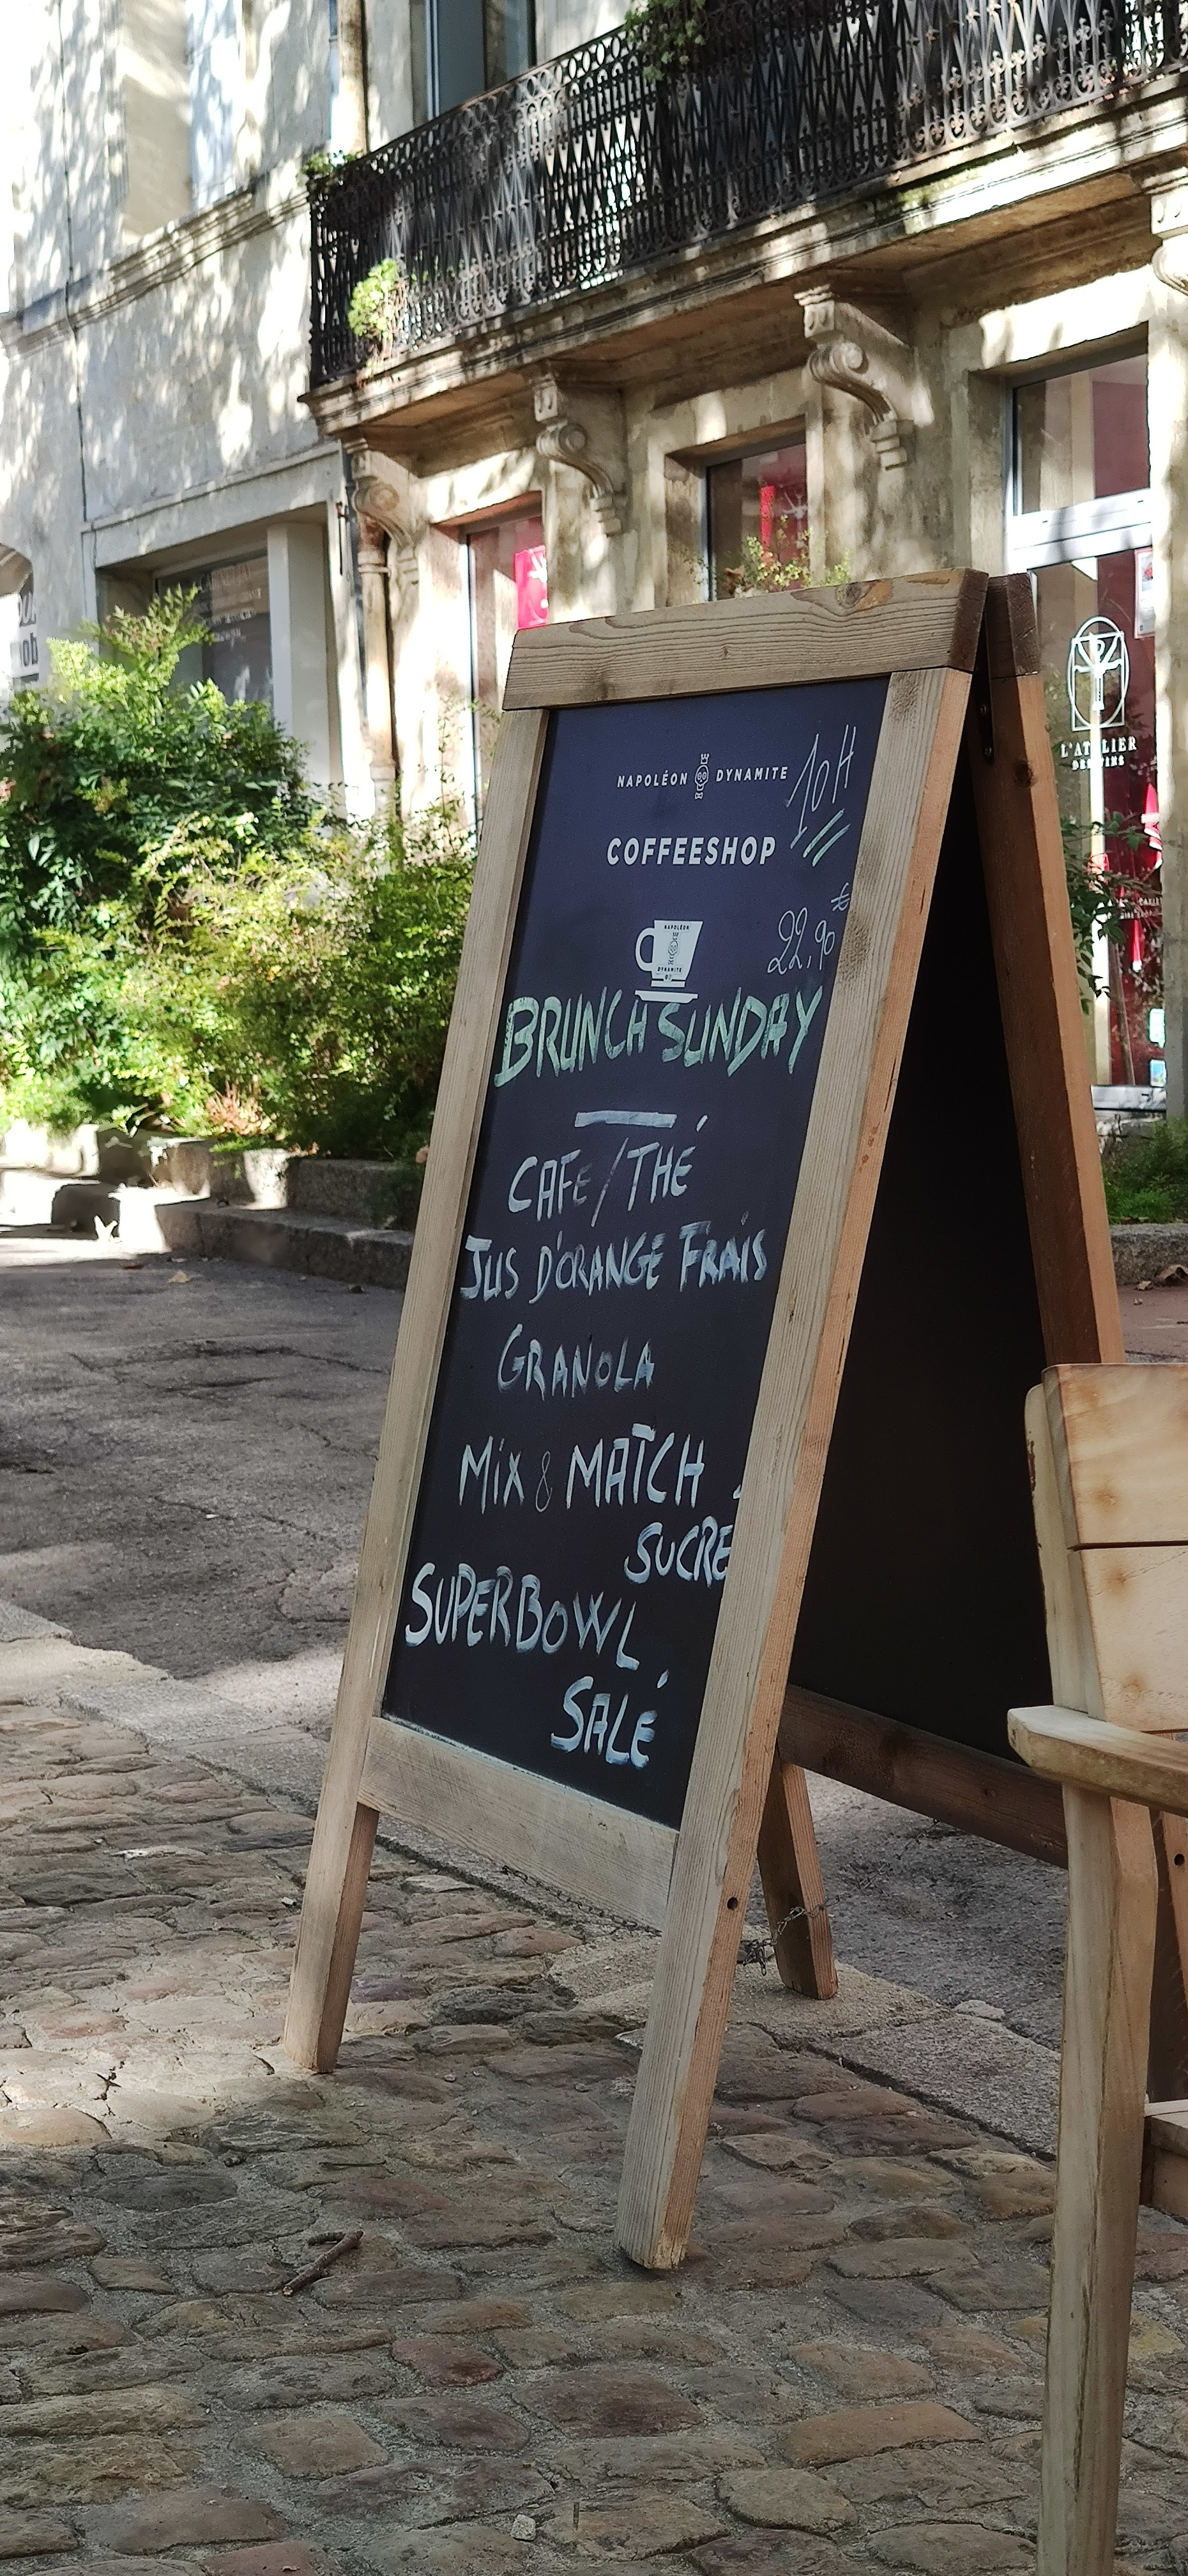 NAPOLÉON DYNAMITE
10H
COFFEESHOP
22,90€
NAPOLÉON
DYNAMITE
BRUNCH SUNDAY
CAFE/THÉ
JUS D'ORANGE FRAIS
GRANOLA
MIX & MATCH
SUCRÉ
SUPERBOWL
SALÉ
L'ATELIER
DES VINS